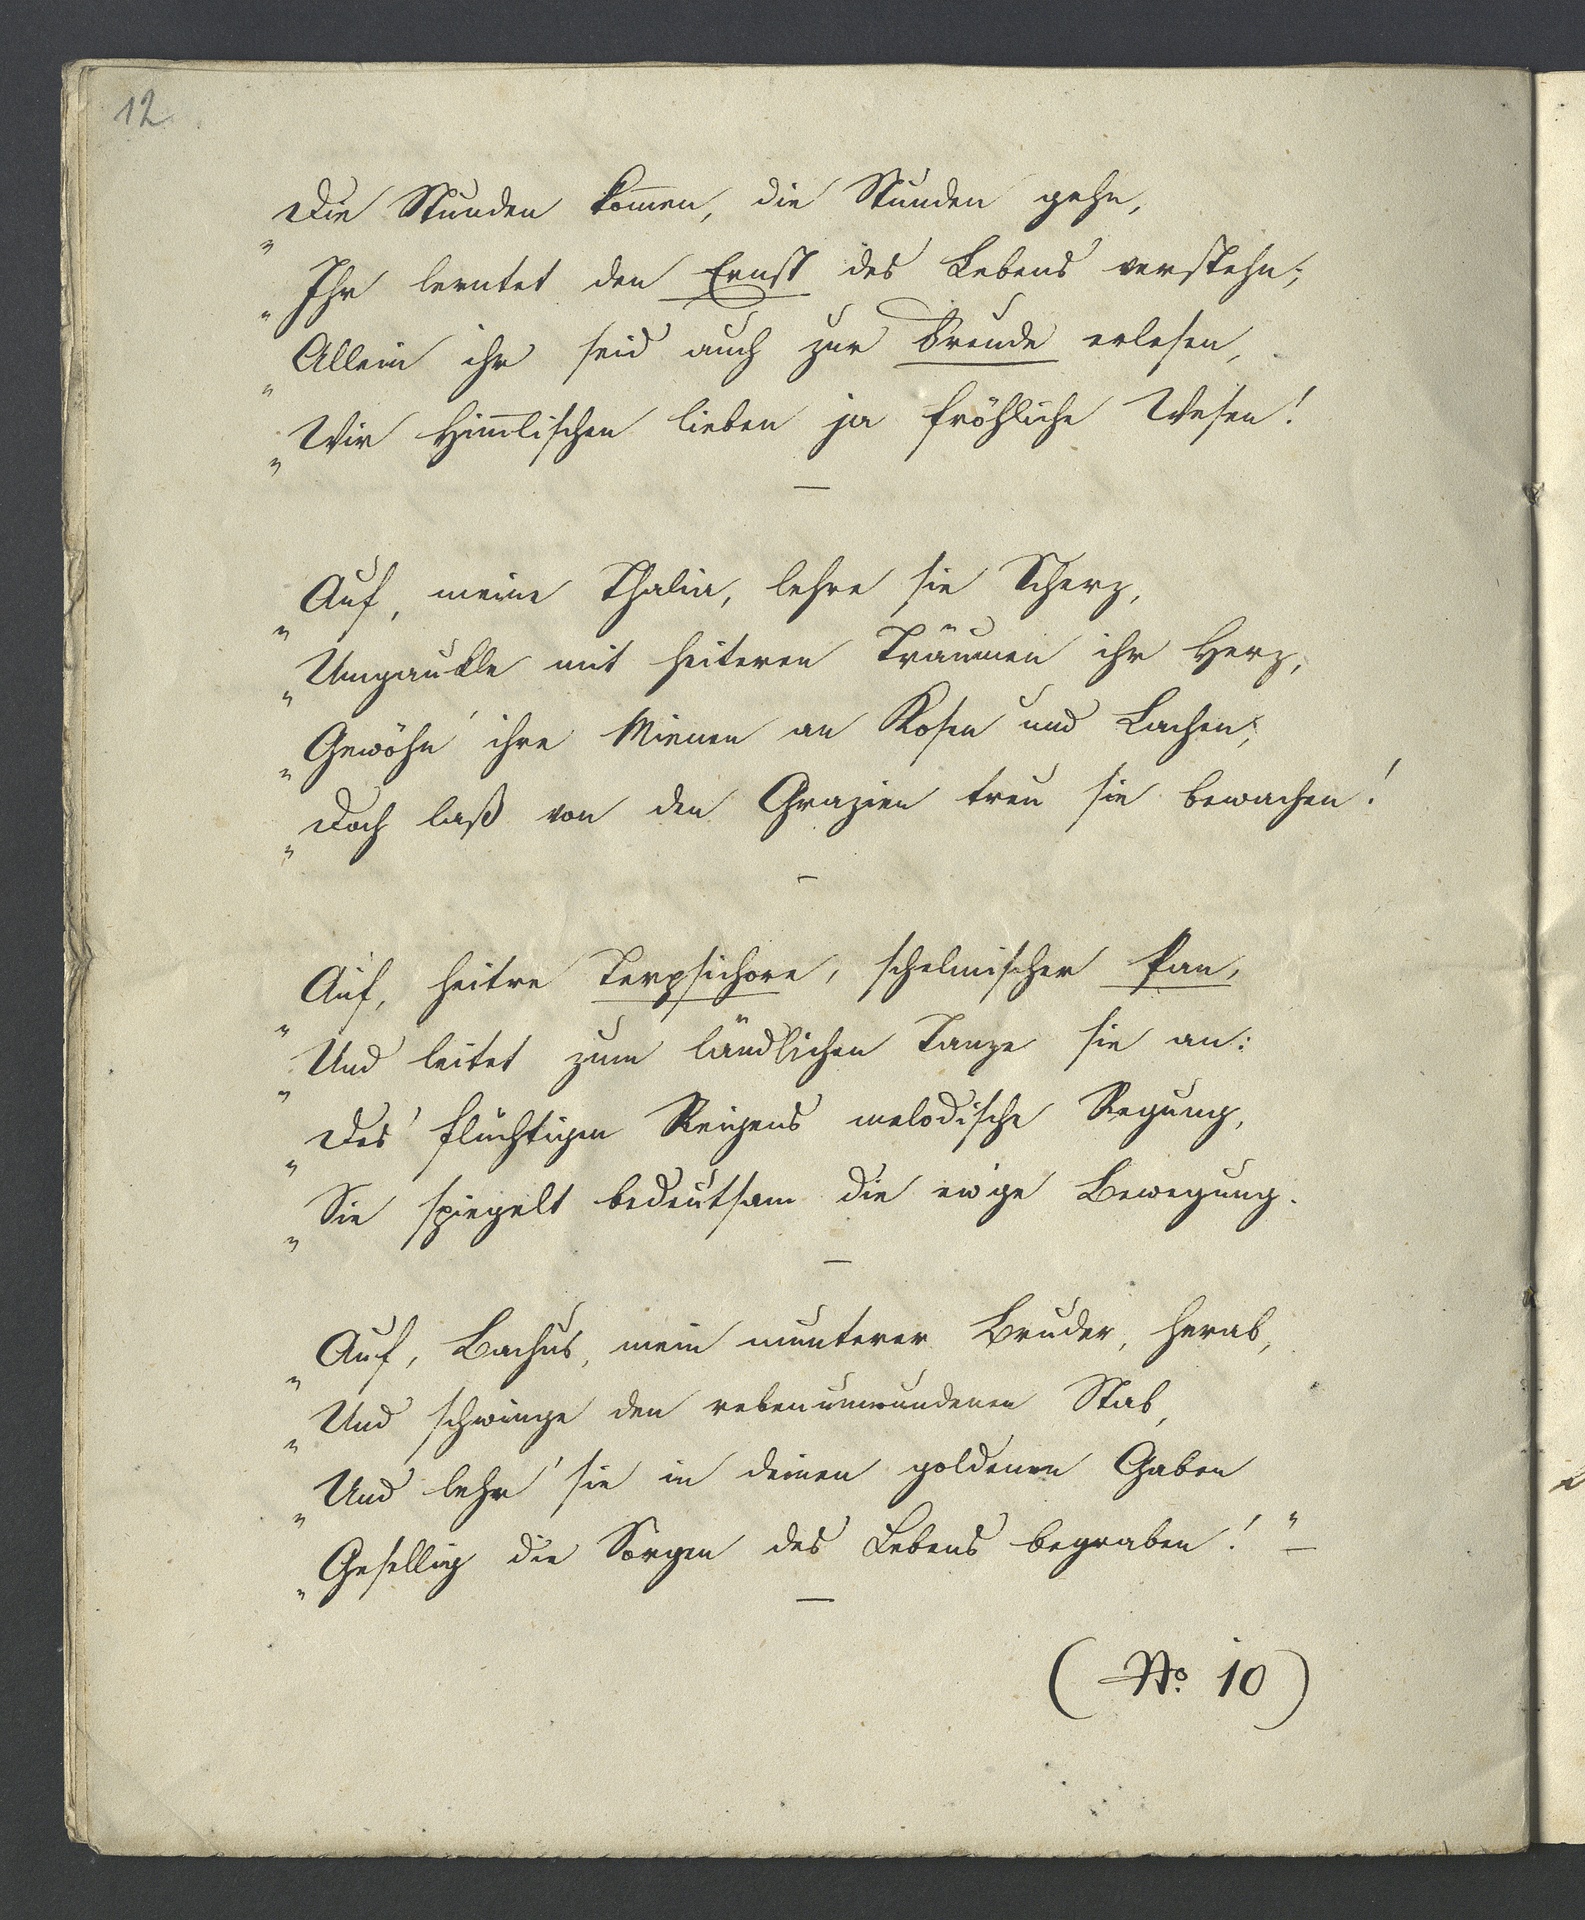 12.
Die Stunden kom̄en, die Stunden gehn,
„Ihr lerntet den Ernst des Lebens verstehn;
„Allein ihr seid auch zur Freude erlesen,
„Wir Him̄lischen lieben ja fröhliche Wesen!
„
—
Auf, meine Thalia, lehre sie Scherz,
„Umgaukle mit heiteren Träumen ihr Herz,
„Gewöhn' ihre Mienen an Kosen und Lachen;
„Doch laß von den Grazien treu sie bewachen!
„
—
Auf, heitre Terpsichore, schelmischer Pan,
„Und leitet zum ländlichen Tanze sie an:
„Des flüchtigen Reigens melodische Regung,
„Sie spiegelt bedeutsam die ew'ge Bewegung.
„
—
„Auf, Bachus, mein munterer Bruder, herab,
„Und schwinge den rebenumwundenen Stab,
„Und lehr' sie in deinen goldenen Gaben
„Gesellig die Sorgen des Lebens begraben!" —
—
(No. 10)